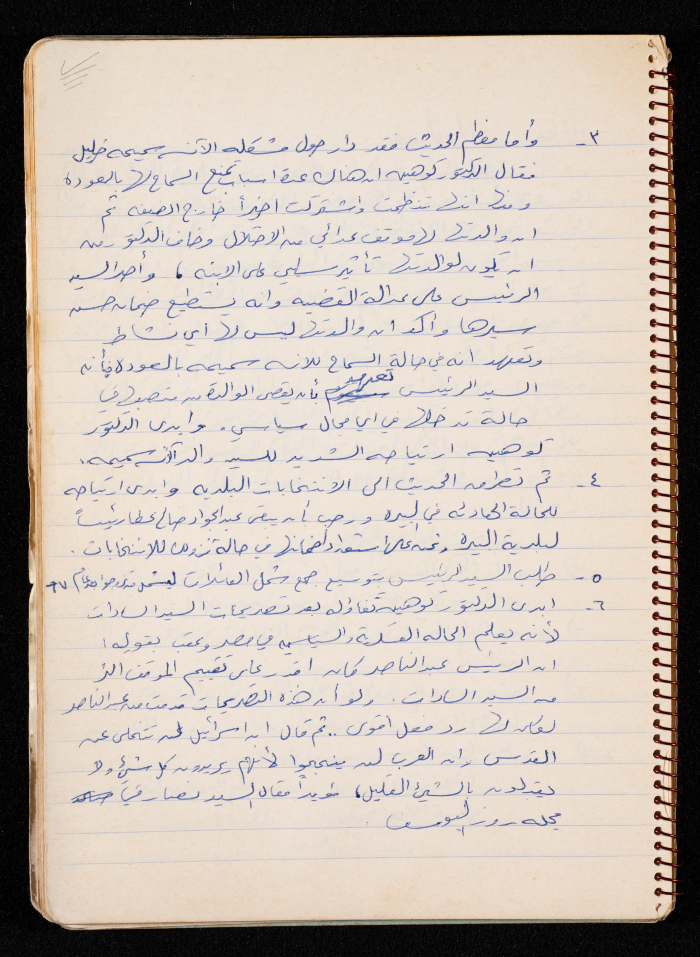 ٣- وأما معظم الحديث فقد دار حول مشكلة الآنسه سميحه خليل
فقال الدكتور كوهين ان هناك عدة اسباب تمنع السماح لها بالعوده
ومنها انها تنظمت واشتركت اخيراً خارج الضفه ثم
ان والدتها لها موقف عدائي من الاحتلال وخاف الدكتور من
ان يكون لوالدتها تأثير سلبي على الابنه، وأصر السيد
الرئيس على عدالة القضيه وانه يستطيع ضمان حسن
سيرها وأكد ان والدتها ليس لها اي نشاط
وتعهد انه في حالة السماح للانسه سميحه بالعوده فإنه
السيد الرئيس تعهد بأن يقصي الوالدة من منصبها في
حالة تدخلها في اي مجال سياسي. وابدى الدكتور
كوهين ارتياحه الشديد للسيد والد الآنسه سميحه.
٤- ثم تطرق الحديث الى الانتخابات البلديه وابدى ارتياحه
للحالة الهادئه في البيره ورحب بأن يبقى عبد الجواد صالح رئيساً
لبلدية البيره ونحن على استعداد في حالة نزوله للانتخابات.
٥- طلب السيد الرئيس بتوسيع جمع شمل العائلات ليشمل عام ٦٧
٦- ابدى الدكتور كوهين تفاؤله بعد تصريحات السيد السادات
لأنه يعلم الحاله العسكرية والسياسيه في مصر وعقب بقوله:
ان الرئيس عبد الناصر كان اقدر على تقييم الموقف اكثر
من السيد السادات. ولو أن هذه التصريحات قدمت من عبد الناصر
لكان لها رد فعل اقوى.. ثم قال ان اسرائيل لن تتخلى عن
القدس وان العرب لن ينجحوا لأنهم يريدون كل شيء ولا
يقبلون بالشيء القليل، مؤيداً مقال السيد نصار في
مجلة روز اليوسف.